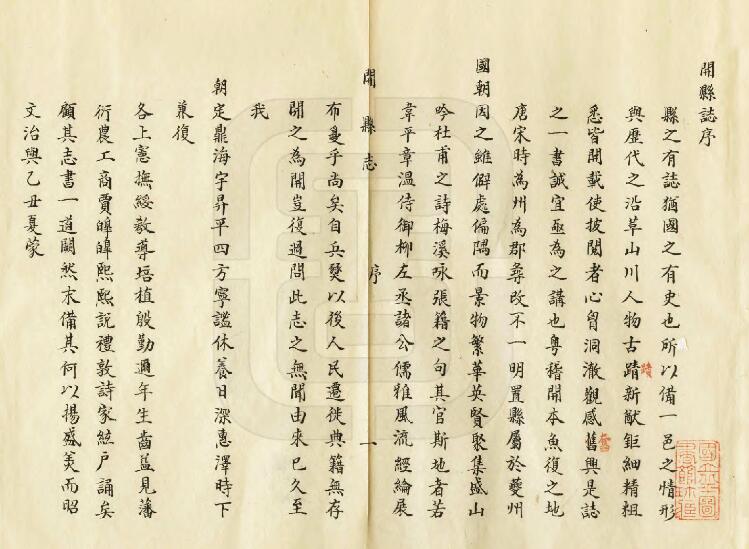 開縣誌序
縣之有誌猶國之有史也所以備一邑之情形
與歷代之沿革山川人物古蹟新猷鉅細精粗
悉皆開載使披閱者心胷洞澈觀感舊興是誌
之一書誠宜亟為之講也粤稽開本魚復之地
唐宋時為州為郡尋改不一明置縣屬於夔州
國朝因之雖僻處偏隅而景物繁華英賢聚集盛山
吟杜甫之詩梅溪咏張籍之句其官斯地者若
韋平章溫侍御柳左丞諸公儒雅風流經綸展
開縣志 序 一
布戞乎尚矣自兵燹以後人民遷徙典籍無存
開之為開豈復過問此志之無聞由來已久至
我
朝定鼎海宇昇平四方寧謐休養日深惠澤時下
兼復
各上憲撫綏教導培植殷勤邇年生齒益見蕃
衍農工商賈皥皥熙熙說禮敦詩家絃戶誦矣
顧其志書一道闕然未備其何以揚盛美而昭
文治興乙丑夏蒙
蹟
奮